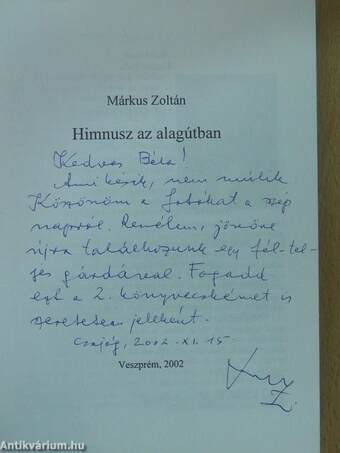 Márkus Zoltán
Himnusz az alagútban
Kedves Béla!
Ami késik, nem múlik
Köszönöm a fotókat a szép
napról. Remélem, jövőre
újra találkozunk egy fél-tel-
jes gárdával. Fogadd
ezt a 2. könyvecskémet is
szeretetem jeleként.
2002. XI. 15
Veszprém, 2002
Antikvárium.hu